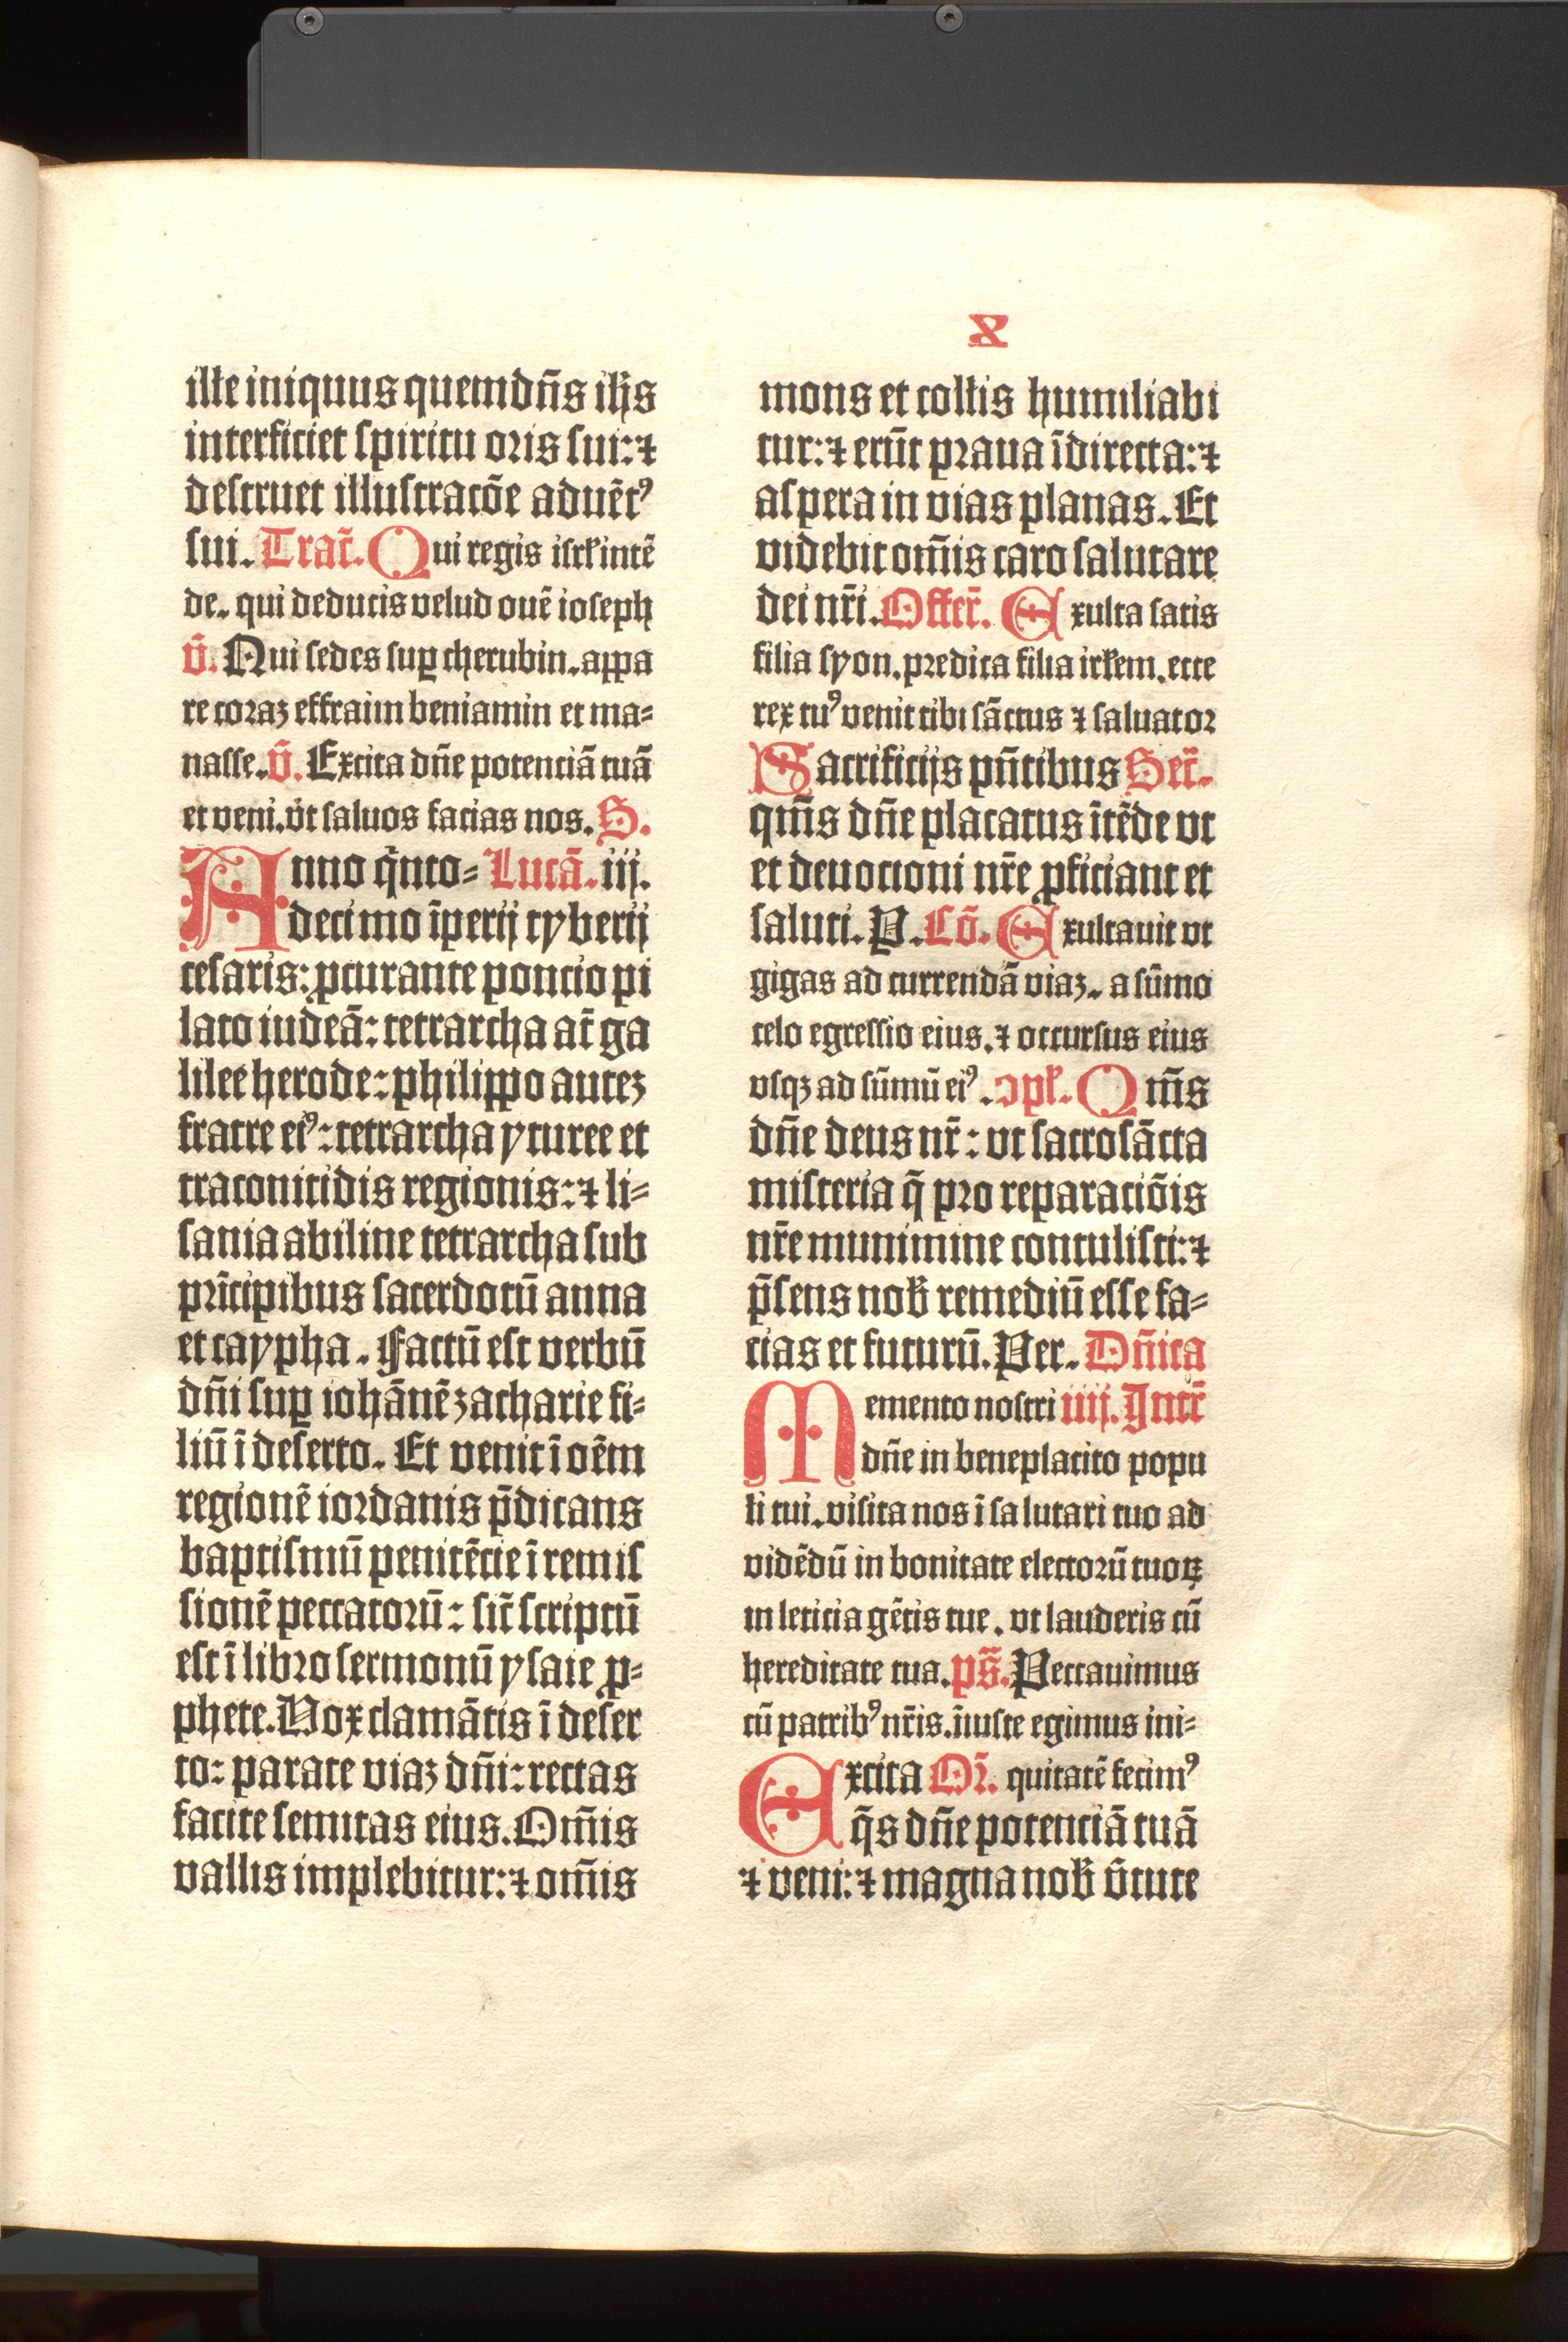 x
ille iniquus quem dn̄s ih̄s
interficiet spiritu oris sui: ⁊
destruet illustratōe aduēt⁹
sui. Trac̄. Qui regis isrl̄ intē
de. qui deducis velud ouē ioseph
v̄. Qui sedes suꝑ cherubin. appa
re coraꝫ effraim beniamin et ma⸗
nasse. v̄. Excita dn̄e potenciā tuā
et veni. vt saluos facias nos. S.
Anno q̄nto⸗ Lucā. iij.
decimo īperij tyberij
cesaris: ꝓcurante poncio pi
lato iudeā: tetrarcha at̄ ga
lilee herode: philippo auteꝫ
fratre ei⁹: tetrarcha yturee et
traconitidis regionis: ⁊ li⸗
sania abiline tetrarcha sub
prīcipibus sacerdotū anna
et caypha. Factū est verbū
dn̄i suꝑ iohānē zacharie fi⸗
liū ī deserto. Et venit ī oēm
regionē iordanis p̄dicans
baptismū penitēcie ī remis
sionē peccatorū: sic̄ scriptū
est ī libro sermonū ysaie ꝓ⸗
phete. Vox clamātis ī deser
to: parate viaꝫ dn̄i: rectas
facite semitas eius. Om̄is
vallis implebitur: ⁊ om̄is
mons et collis humiliabi
tur: ⁊ erūt praua ī directa: ⁊
aspera in vias planas. Et
videbit om̄is caro salutare
dei nr̄i. Offer̄. Exulta satis
filia syon. predica filia irl̄em. ecce
rex tu⁹ venit tibi sāctus ⁊ saluator
Sacrificijs pn̄tibus Sec̄r.
qm̄s dn̄e placatus ītēde vt
et deuocioni nr̄e ꝓficiant et
saluti. P. Cō. Exultauit vt
gigas ad currendā viaꝫ. a sūmo
celo egressio eius. ⁊ occursus eius
vsqꝫ ad sūmū ei⁹. ↄpl̄. Qm̄s
dn̄e deus nr̄: vt sacrosācta
misteria q̄ pro reparaciōis
nr̄e munimine contulisti: ⁊
p̄sens nob̄ remediū esse fa⸗
cias et futurū. Per. Dn̄ica
Memento nostri iiij. Intr̄
dn̄e in beneplacito popu
li tui. visita nos ī salutari tuo ad
vidēdū in bonitate electorū tuoꝝ
in leticia gētis tue. vt lauderis cū
hereditate tua. ps̄. Peccauimus
cū patrib⁹ nr̄is. īiuste egimus ini⸗
Excita Or̄. quitatē fecim⁹
q̄s dn̄e potenciā tuā
⁊ veni: ⁊ magna nob̄ v̄tute